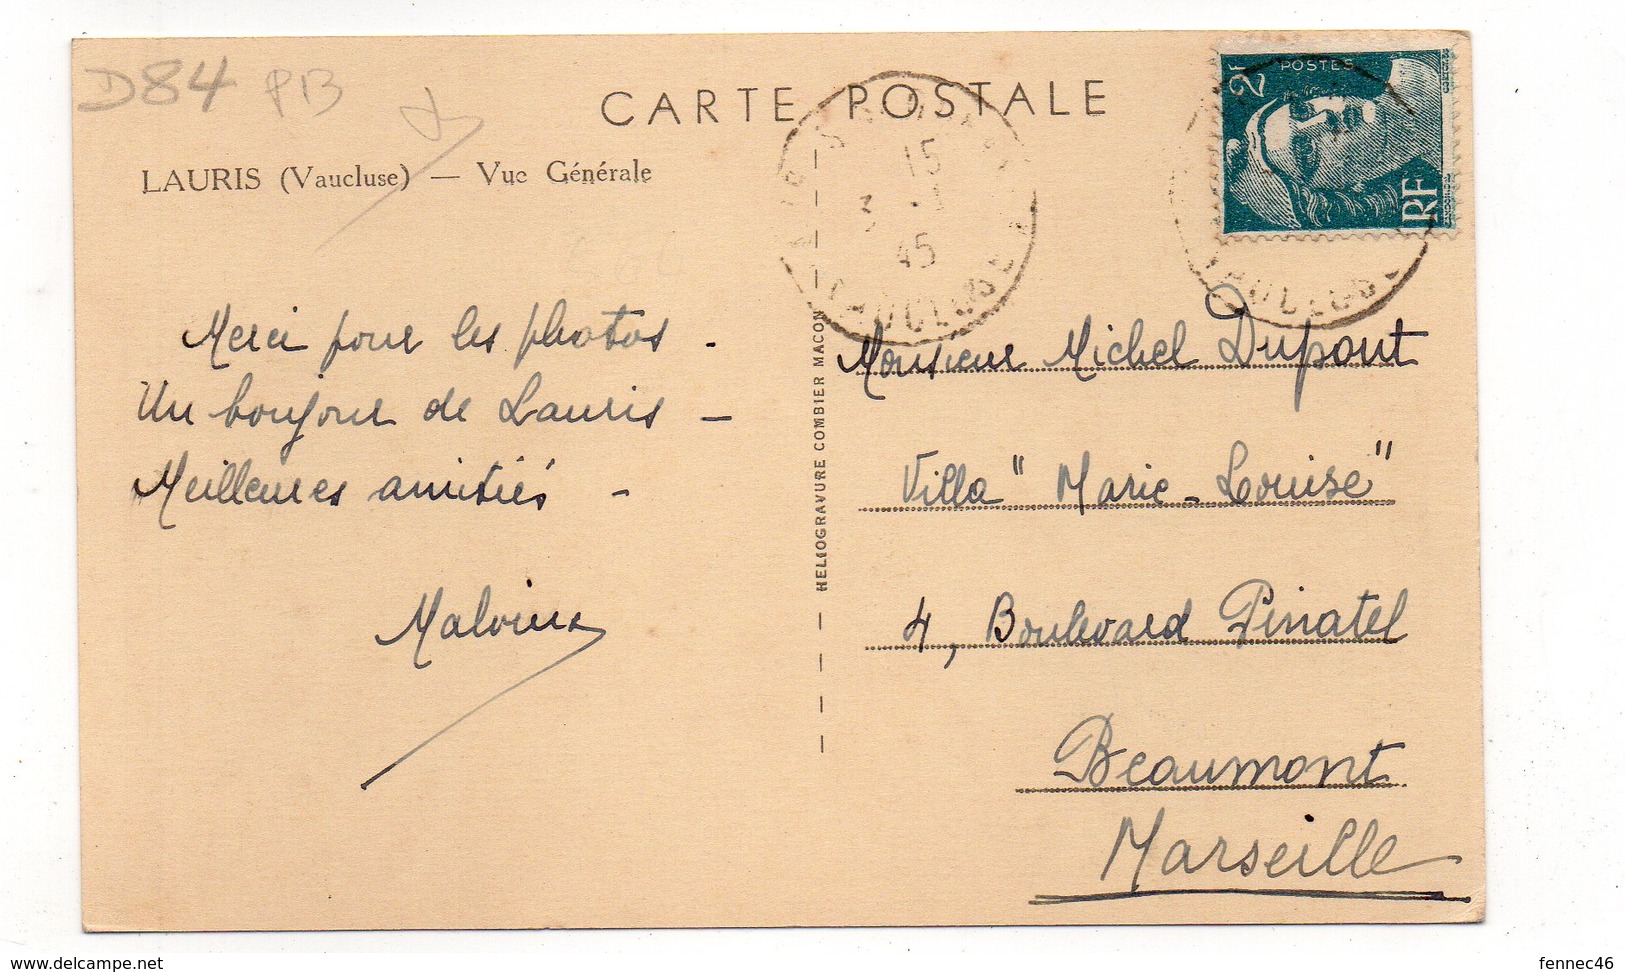 D84 PB
CARTE POSTALE
LAURIS (Vaucluse) — Vue Générale
2F POSTES
RF
15
3 - 1
45
VAUCLUSE
VAUCLUSE
Merci pour les photos -
Un bonjour de Lauris -
Meilleures amitiés -
HELIOGRAVURE COMBIER MACON
Monsieur Michel Dupont
Villa "Marie-Louise"
4, Boulevard Pinatel
Beaumont
Marseille
fennec46